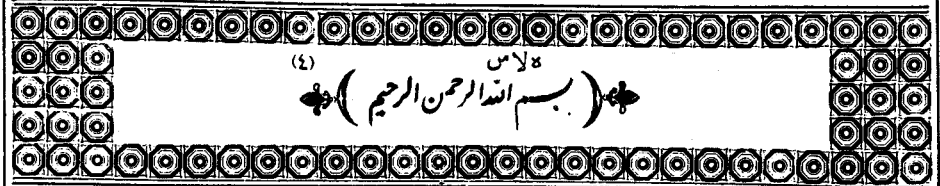 ه لا س (٤)
بسم الله الرحمن الرحيم